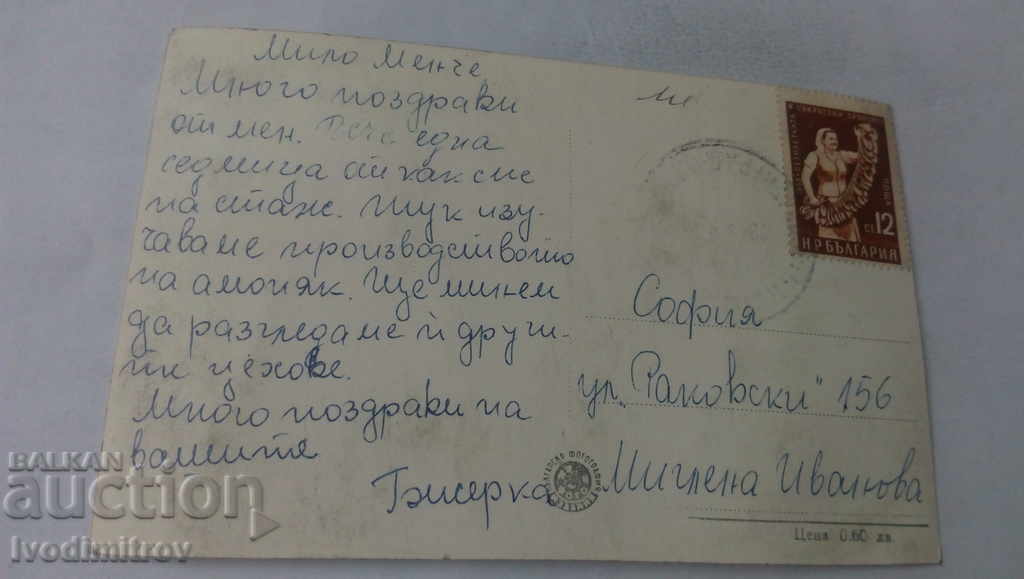 Мило Менче
Много поздрави
от мен. Вече една
седмица откак сме
на стаж. Тук изу-
чаваме производството
на амоняк. Ще минем
да разгледаме и други-
те цехове.
Много поздрави на
вашите
Бисерка
София
ул. "Раковски" 156
Миглена Иванова
ст. 12
Н Р БЪЛГАРИЯ
Цена 0.60 лв.
BALKAN
auction
Ivodimitrov